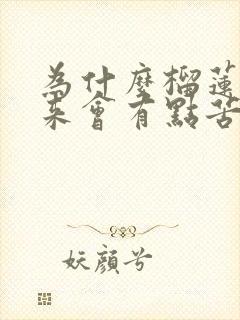 為什麼榴蓮
來會有點苦
妖顏兮